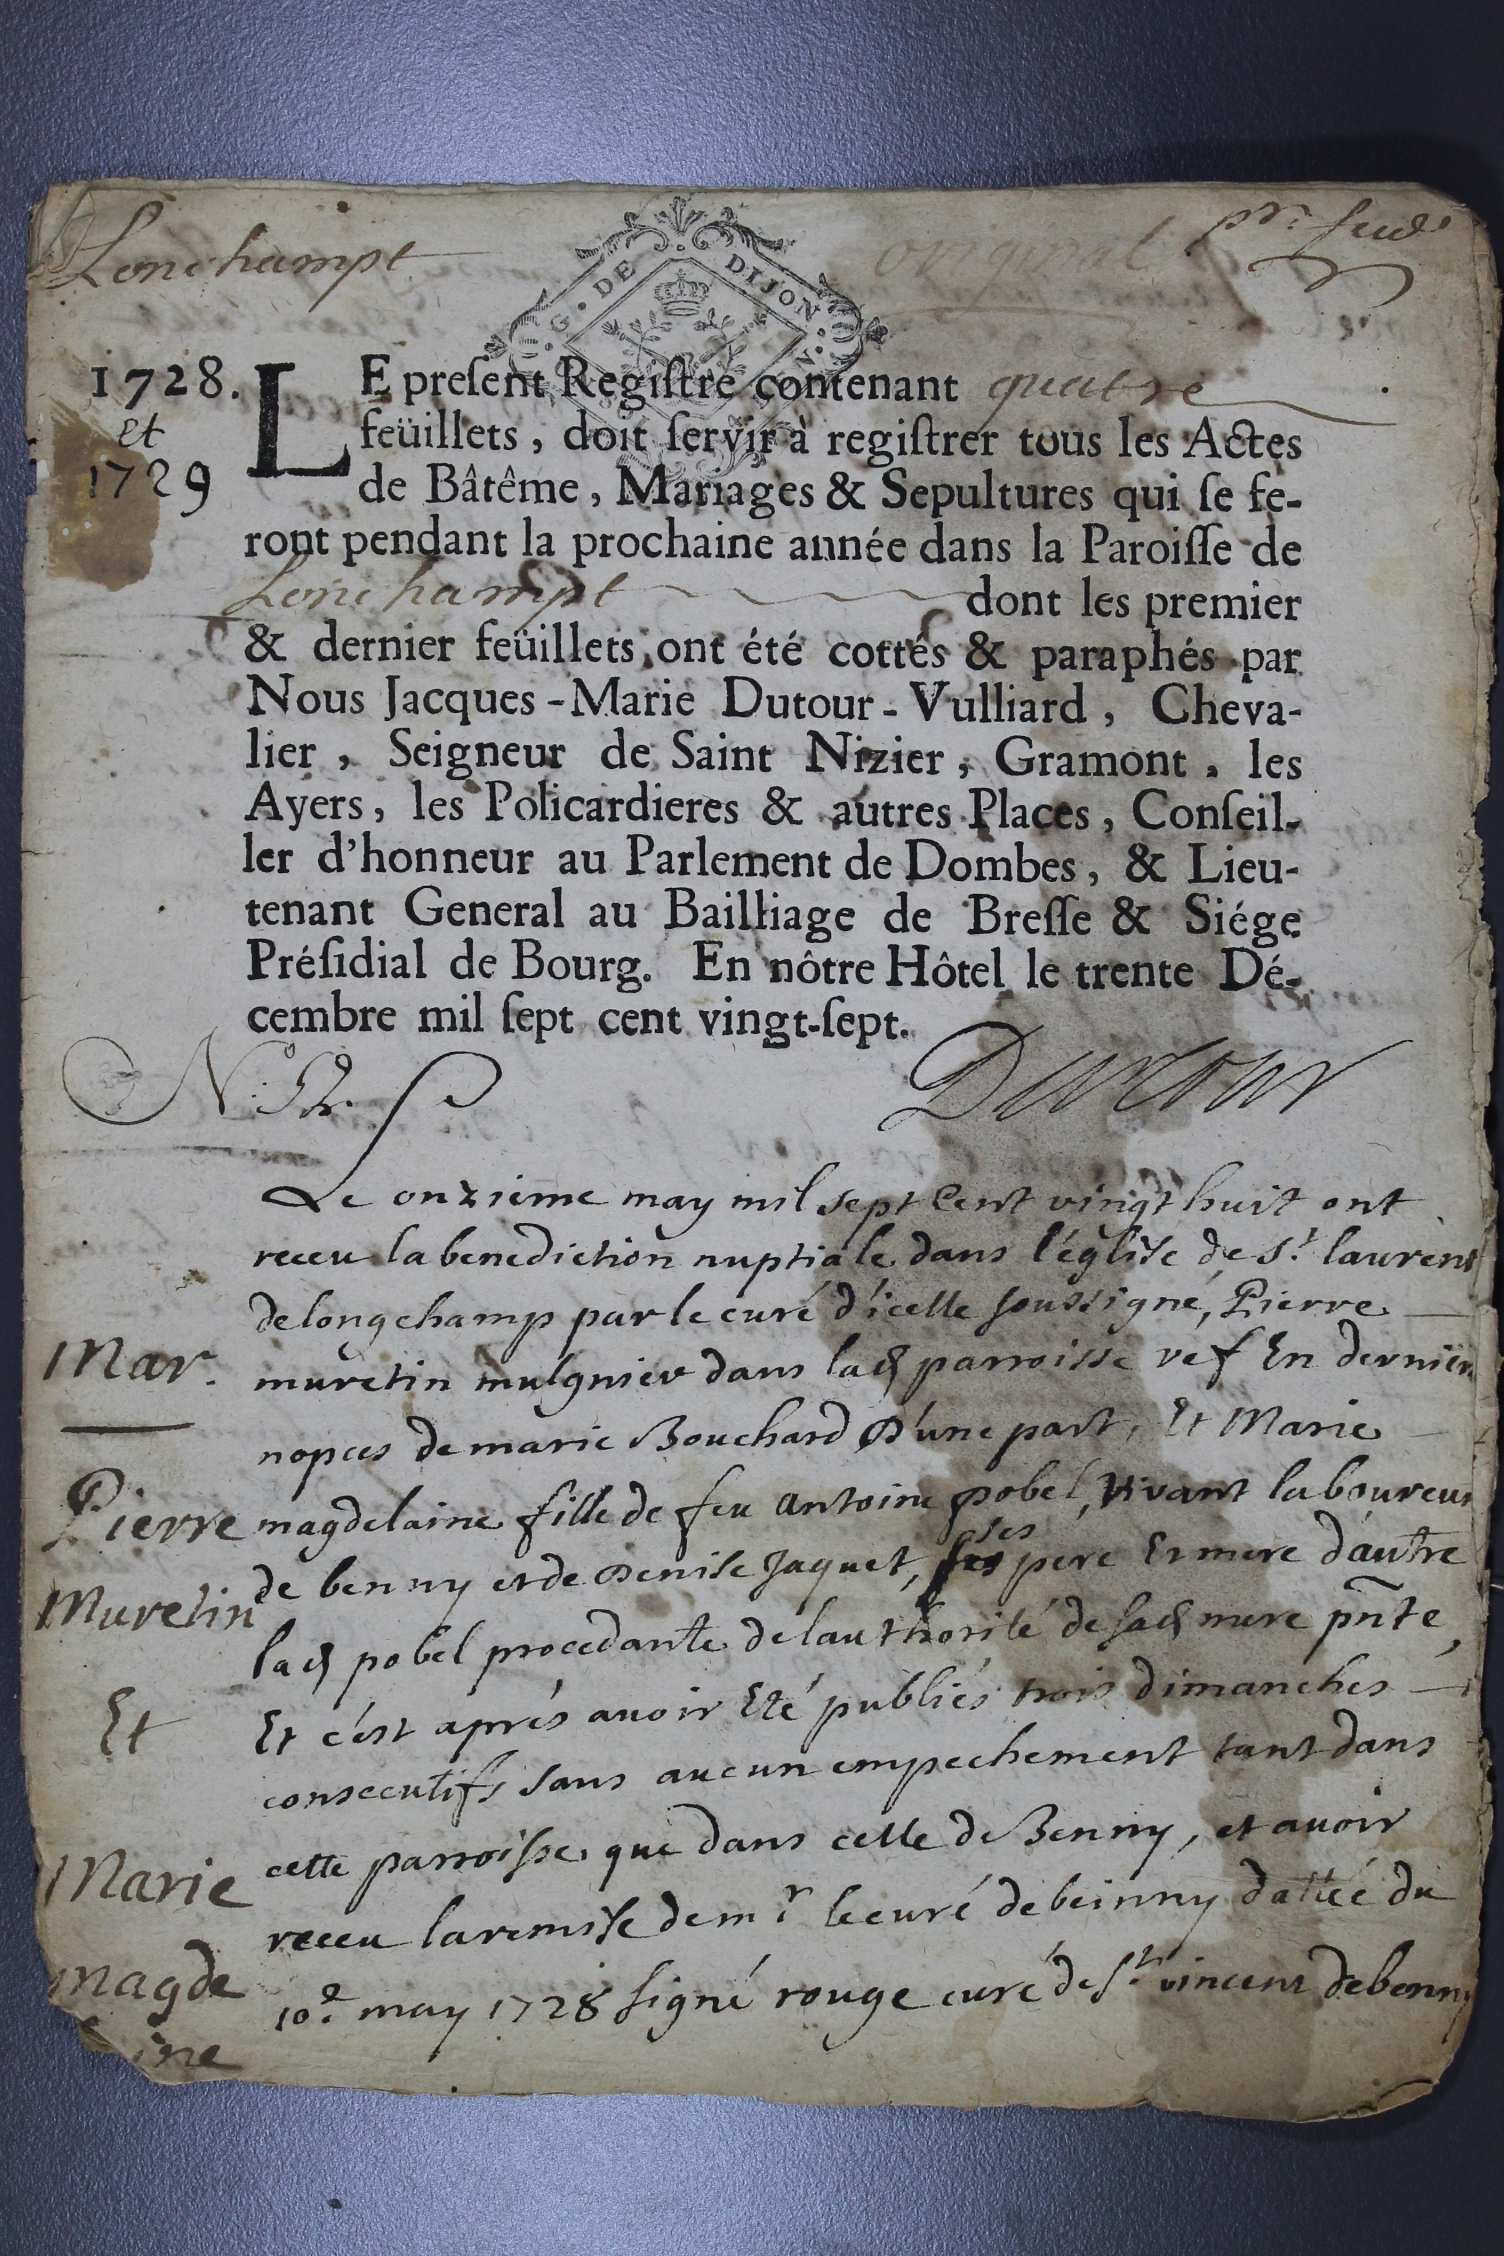 Lonchampt original
G. DE DIJON
1728.
et
1729
LE preſent Regiſtre contenant quatre
feüillets, doit ſervir à regiſtrer tous les Actes
de Bâtême, Mariages & Sepultures qui ſe fe-
ront pendant la prochaine année dans la Paroiſſe de
Lonchampt dont les premier
& dernier feüillets, ont été cottés & paraphés par
Nous Jacques-Marie Dutour-Vulliard, Cheva-
lier, Seigneur de Saint Nizier, Gramont, les
Ayers, les Policardieres & autres Places, Conſeil-
ler d'honneur au Parlement de Dombes, & Lieu-
tenant General au Bailliage de Breſſe & Siége
Préſidial de Bourg. En nôtre Hôtel le trente Dé-
cembre mil ſept cent vingt-ſept.
Dutour
Le onzieme may mil sept Cent vingt huit ont
receu la benediction nuptiale dans l'église de st. laurent
de longchamp par le curé d'icelle soussigné, Pierre
muretin mulgnier dans lad parroisse vef En derniere
nopces de marie Bouchard D'une part, Et Marie
magdelaine fille de feu antoine pobel, vivant laboureur
de benny et de Denise Jaquet, ses pere et mere d'autre
lad pobel procedante de lauthorité de sad mere pnte,
Et c'est aprés avoir Eté publiés trois dimanches
consecutifs sans aucun empechement tant dans
cette parroisse que dans celle de Benny, et avoir
receu la remise de mr le curé de beinny dattée du
10e. may 1728 signé rouge curé de st. vincent de benny
Mar.
Pierre
Muretin
Et
Marie
magde
ine